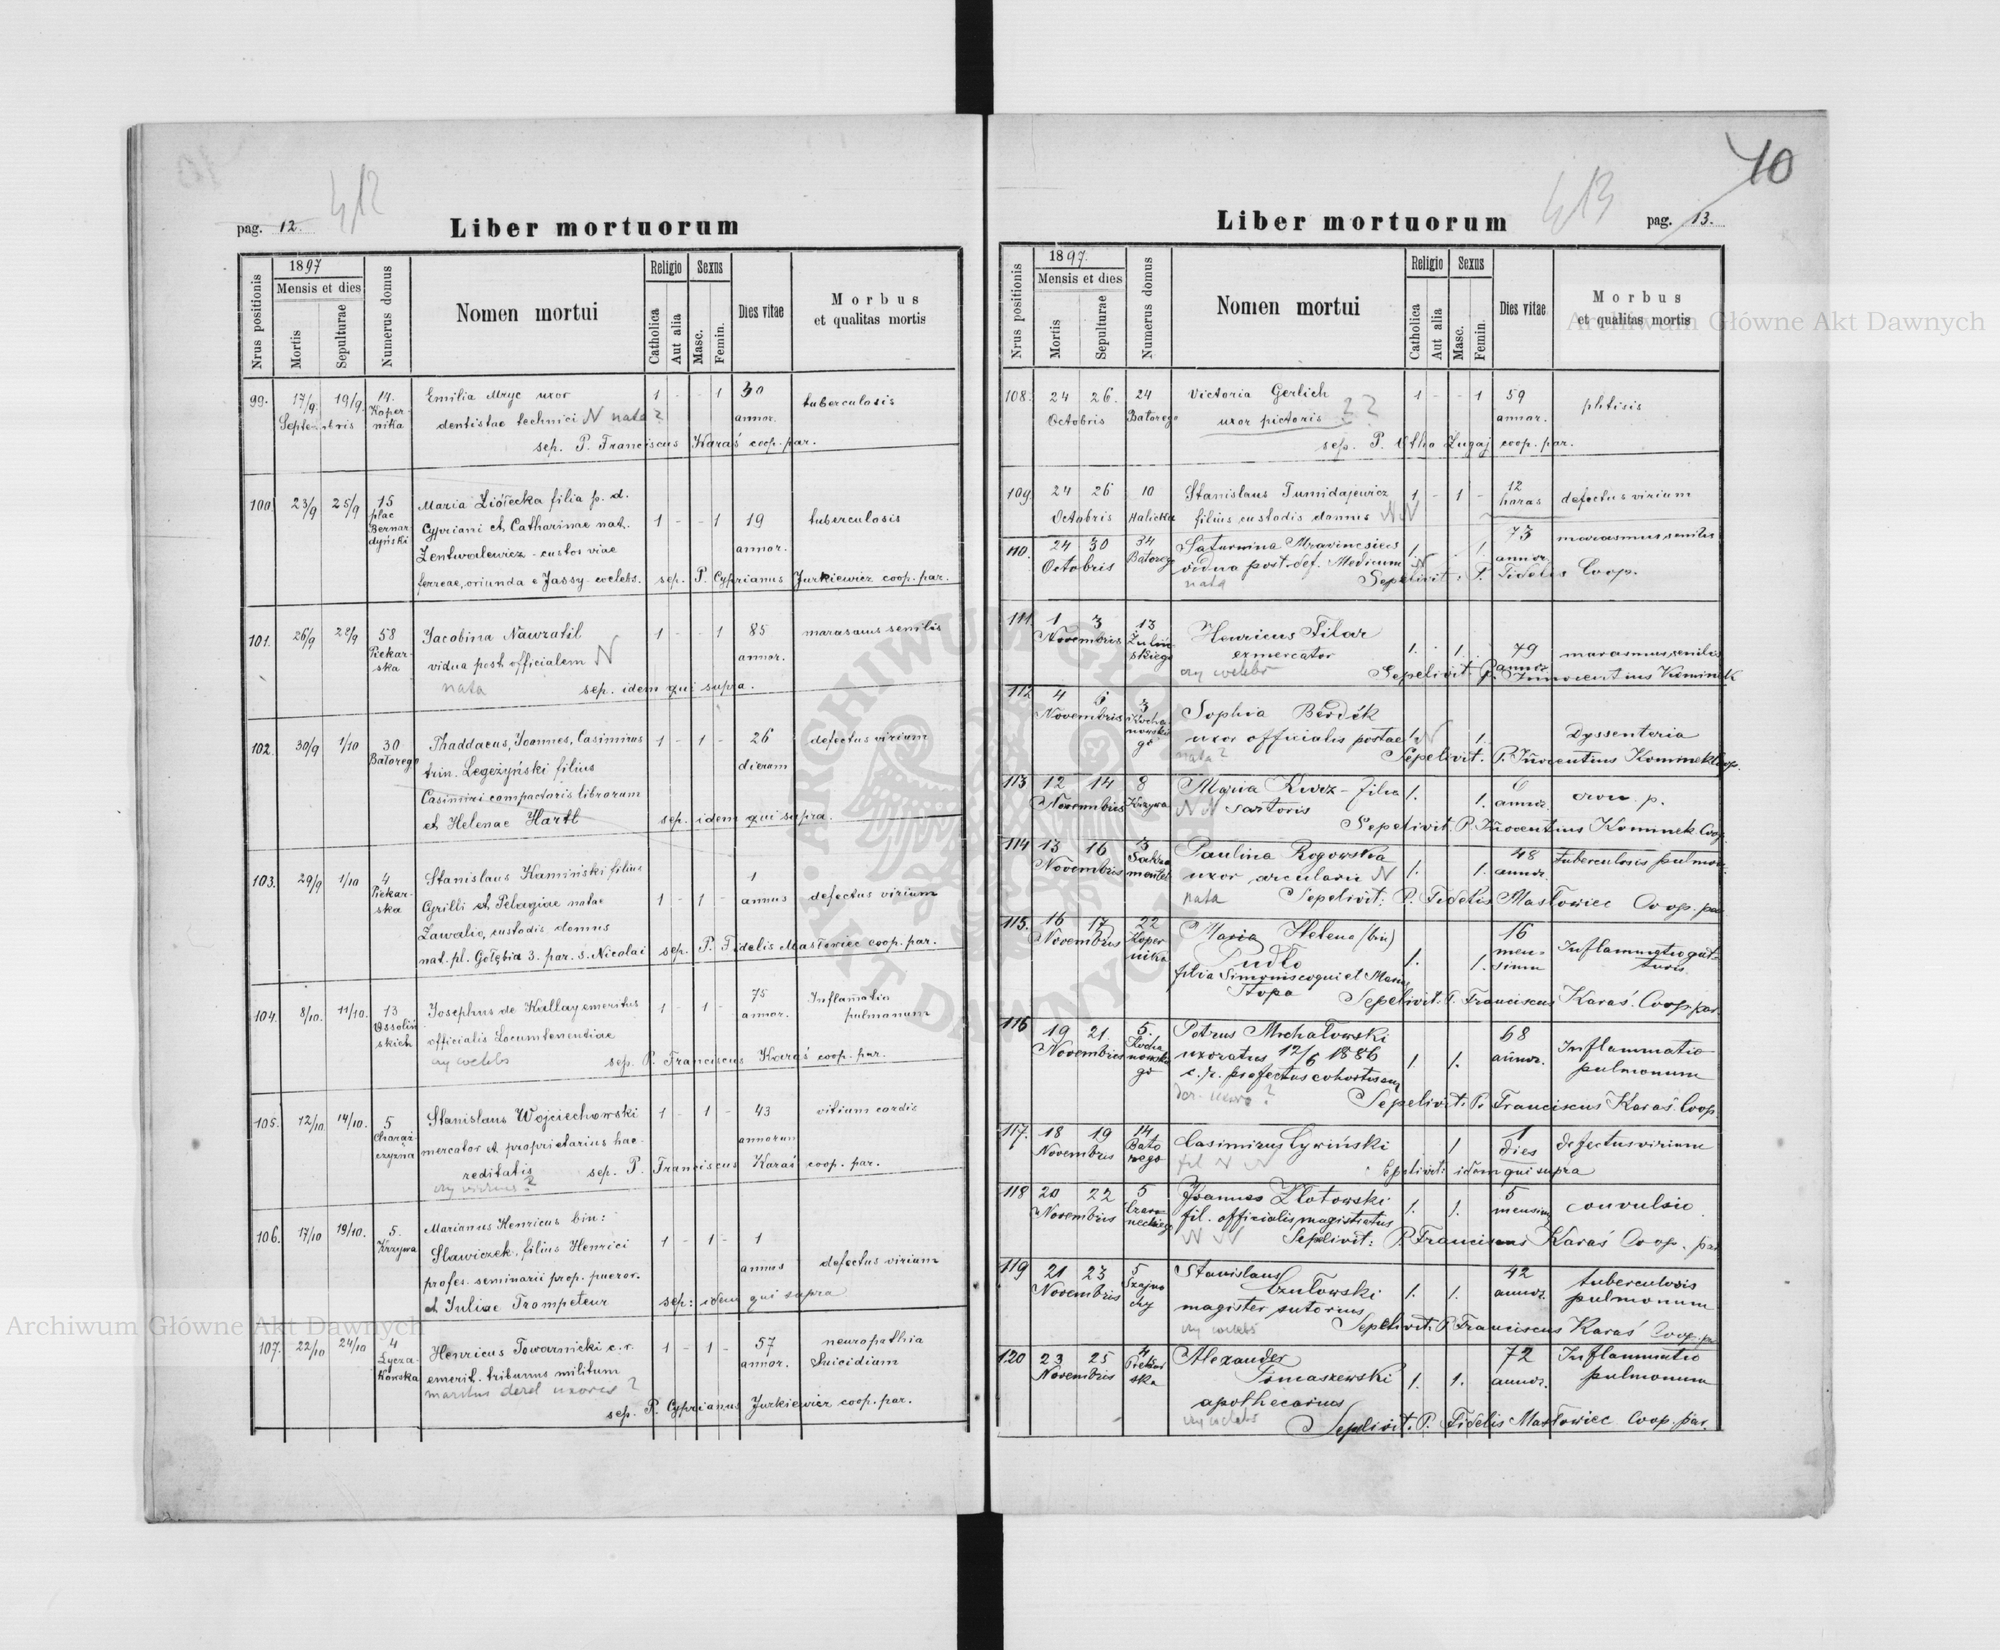 pag. 12.
412
Liber mortuorum
Nrus positionis
1897
Mensis et dies
Mortis
Sepulturae
Numerus domus
Nomen mortui
Religio
Catholica
Aut alia
Sexus
Masc.
Femin.
Dies vitae
Morbus
et qualitas mortis
99. 17/9. 19/9. 14. Emilia Mryc uxor 1 - - 1 30 tuberculosis
Septembris Koper-
nika dentistae technici N nata ? annor.
sep. P. Franciscus Karaś coop. par.
100 23/9 25/9 15 Maria filia p. d.
plac Cypriani et Catharinae nat. 1 - - 1 19 tuberculosis
Bernar
dyński - custos viae annor.
ferreae, oriunda e Jassy - coelebs. sep. P. Cyprianus Jurkiewicz coop. par.
101. 26/9 28/9 58 Jacobina Nawratil 1 - - 1 85 marasmus senilis
Piekar-
ska vidua post officialem N annor.
nata sep. idem qui supra.
102. 30/9 1/10 30 Thaddaeus, Joannes, Casimirus 1 - 1 - 26 defectus virium
Batorego trin. Legeżyński filius dierum
Casimiri compactoris librorum
et Helenae Hartl sep. idem qui supra.
103. 29/9 1/10 4 Stanislaus Kamiński filius 1
Piekar-
ska Cyrilli et Pelagiae natae 1 - 1 - annus defectus virium
Zawalio, custodis domus
nat. pl. Gołębia 3. par. S. Nicolai sep. P. Fidelis Masłowiec coop. par.
104. 8/10. 11/10. 13 Josephus de Kallay emeritus 1 - 1 - 75 Inflamatio
Ossoliń
skich officialis Locumtenentiae annor. pulmonum
czy coelebs sep. P. Franciscus Karaś coop. par.
105. 12/10 14/10. 5 Stanislaus Wojciechowski 1 - 1 - 43 vitium cordis
mercator et proprietarius hae- annorum
reditatis sep. P. Franciscus Karaś coop. par.
czy viduus ?
106. 17/10 19/10. 5. Marianus Henricus bin:
Krzywa Sławiczek, filius Henrici 1 - 1 - 1
profes. seminarii prep. pueror. annus defectus virium
et Juliae Trompeteur sep: idem qui supra
107. 22/10 24/10 4 Henricus Towarnicki c. r. 1 - 1 - 57 neuropathia
Łycza-
kowska emerit. tribunus militum annor. Suicidium
maritus derel uxoris ?
sep. P. Cyprianus Jurkiewicz coop. par.
10
413
Liber mortuorum
pag. 13.
Nrus positionis
1897.
Mensis et dies
Mortis
Sepulturae
Numerus domus
Nomen mortui
Religio
Catholica
Aut alia
Sexus
Masc.
Femin.
Dies vitae
Morbus
et qualitas mortis
108. 24 26. 24 Victoria Gerlich 1 - - 1 59 phtisis
Octobris Batorego uxor pictoris ? ? annor.
sep. P. Otho Zugaj coop. par.
109. 24 26 10 Stanislaus Tumidajewicz 1 - 1 - 12 defectus virium
Octobris Halicka filius custodis domus N N horas
110. 24 30 34 Saturnina 1. 1. 73 marasmus senilis
Octobris Batorego vidua post. def. Medicum N annor.
nata Sepelivit: P. Fidelis Coop.
111. 1 3 13 Henricus Filar
Novembris Żuliń-
skiego exmercator 1. 1. 79 marasmus senilis
czy coelebs annor.
Sepelivit. P. Innocentius Kominek
112 4 6 3 Sophia
Novembris Kocha-
nowskie
go uxor officialis postae N 1. Dyssenteria
nata ? Sepelivit. P. Innocentius Kominek Coop.
113 12 14 8 Maria Kurz - filia 1. 1. 6 croup.
Novembris Krzywa N N Sartoris annor.
Sepelivit. P. Innocentius Kominek Coop.
114 13 16 3 Paulina Rogowska 48 tuberculosis pulmon.
Novembris Sakra
mentek uxor arcularii N 1. 1. annor.
nata Sepelivit: P. Fidelis Masłowiec Coop. par
115. 16 17 22 Maria Helena (bin) 16
Novembris Koper
nika Pudło 1. 1. men-
sium Inflammatio gut-
turis.
filia Simonis coqui et Mariae
Stopa Sepelivit. P. Franciscus Karaś. Coop. par.
116 19 21. 5. Petrus Michałowski 68
Novembris Kocha
nowskie
go uxoratus 12/6 1886 1. 1. annor. Inflammatio
pulmonum
c. r. profectus cohortium
der. uxoris ? Sepelivit. P. Franciscus Karaś. Coop.
117. 18 19 14 Casimirus Cywiński 1 1 defectus virium
Novembris Bato
rego fil N N dies
Sepelivit: idem qui supra
118 20 22 5 Joannes Złotowski 1. 1. 5 convulsio.
Novembris Czar-
neckiego fil. officialis magistratus mensium
N N Sepelivit: P. Franciscus Karaś Coop. par
119 21 23 5 Stanislaus 42 tuberculosis
Novembris Szajno
chy Czułowski 1. 1. annor. pulmonum
magister sutorius
czy coelebs Sepelivit. P. Franciscus Karaś Coop. par
120 23 25 4 Alexander 72 Inflammatio
Novembris Piekar
ska Tomaszewski 1. 1. annor. pulmonum
apothecarius
czy coelebs Sepelivit. P. Fidelis Masłowiec Coop. par.
Archiwum Główne Akt Dawnych
Archiwum Główne Akt Dawnych
ARCHIWUM GŁÓWNE AKT DAWNYCH